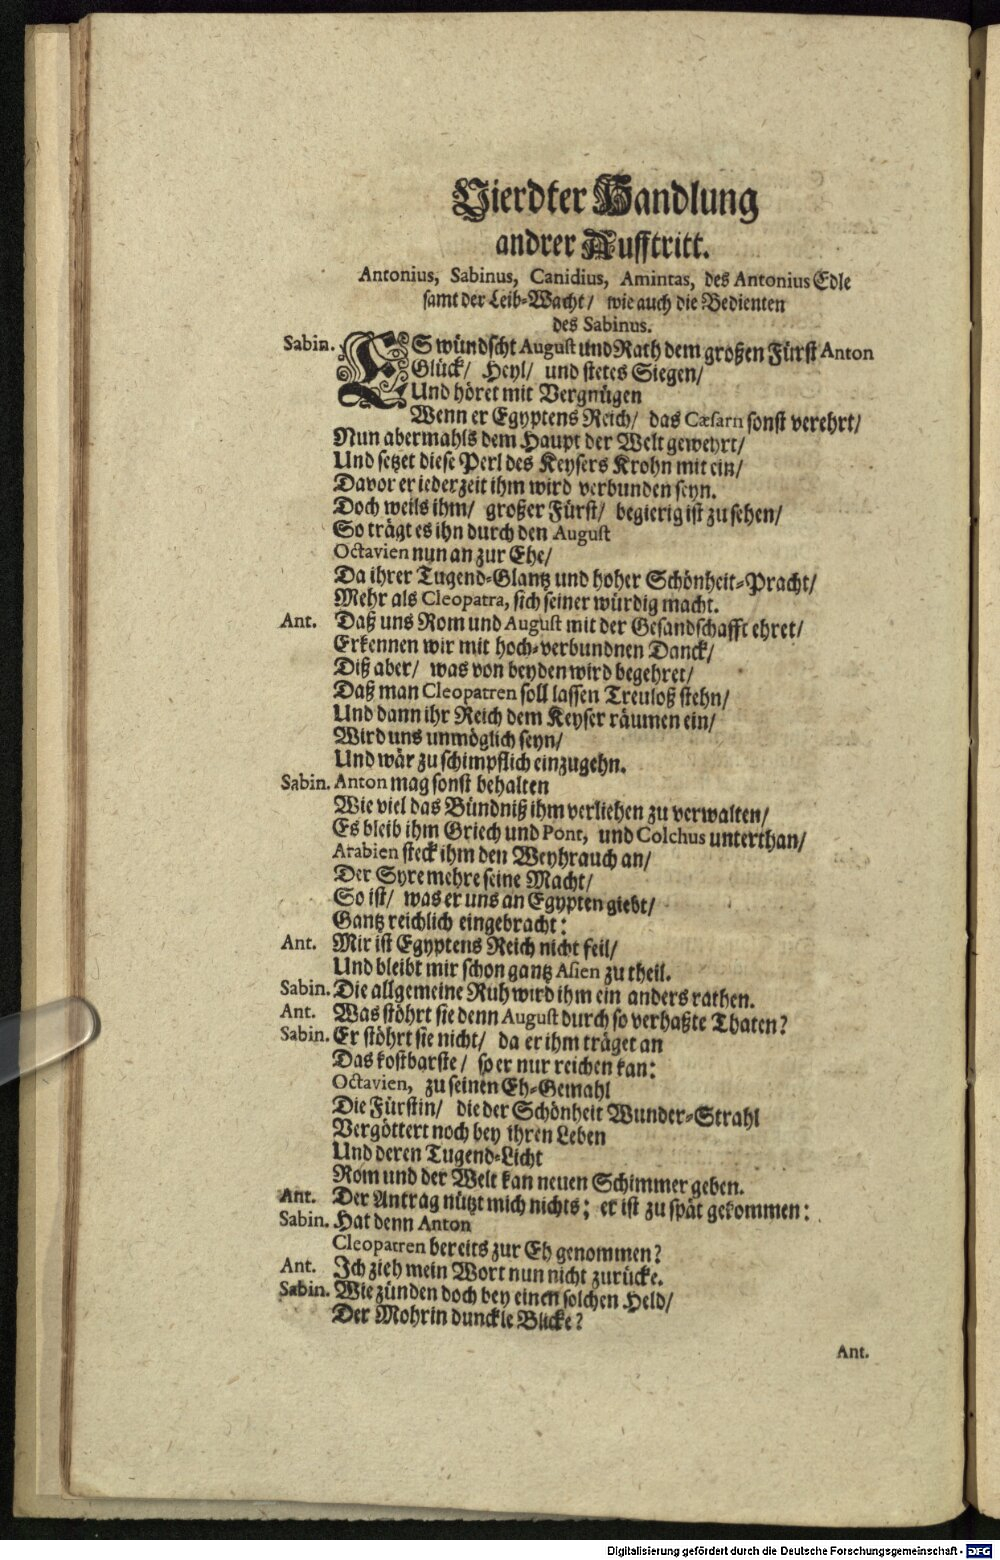 Vierdter Handlung
andrer Aufftritt.
Antonius, Sabinus, Canidius, Amintas, des Antonius Edle
samt der Leib-Wacht/ wie auch die Bedienten
des Sabinus.
Sabin. ES wündscht August und Rath dem großen Fürst Anton
Glück/ Heyl/ und stetes Siegen/
Und höret mit Vergnügen
Wenn er Egyptens Reich/ das Cæsarn sonst verehrt/
Nun abermahls dem Haupt der Welt gewehrt/
Und setzet diese Perl des Keysers Krohn mit ein/
Davor er iederzeit ihm wird verbunden seyn.
Doch weils ihm/ großer Fürst/ begierig ist zu sehen/
So trägt es ihn durch den August
Octavien nun an zur Ehe/
Da ihrer Tugend-Glantz und hoher Schönheit-Pracht/
Mehr als Cleopatra, sich seiner würdig macht.
Ant. Daß uns Rom und August mit der Gesandschafft ehret/
Erkennen wir mit hoch-verbundnen Danck/
Diß aber/ was von beyden wird begehret/
Daß man Cleopatren soll lassen Treuloß stehn/
Und dann ihr Reich dem Keyser räumen ein/
Wird uns unmöglich seyn/
Und wär zu schimpflich einzugehn.
Sabin. Anton mag sonst behalten
Wie viel das Bündniß ihm verliehen zu verwalten/
Es bleib ihm Griech und Pont, und Colchus unterthan/
Arabien steck ihm den Weyhrauch an/
Der Syre mehre seine Macht/
So ist/ was er uns an Egypten giebt/
Gantz reichlich eingebracht:
Ant. Mir ist Egyptens Reich nicht feil/
Und bleibt mir schon gantz Asien zu theil.
Sabin. Die allgemeine Ruh wird ihm ein anders rathen.
Ant. Was stöhrt sie denn August durch so verhaßte Thaten?
Sabin. Er stöhrt sie nicht/ da er ihm träget an
Das kostbarste/ so er nur reichen kan:
Octavien, zu seinen Eh-Gemahl
Die Fürstin/ die der Schönheit Wunder-Strahl
Vergöttert noch bey ihren Leben
Und deren Tugend-Licht
Rom und der Welt kan neuen Schimmer geben.
Ant. Der Antrag nützt mich nichts; er ist zu spät gekommen:
Sabin. Hat denn Anton
Cleopatren bereits zur Eh genommen?
Ant. Ich zieh mein Wort nun nicht zurücke.
Sabin. Wie zünden doch bey einen solchen Held/
Der Mohrin dunckle Blicke?
Ant.
Digitalisierung gefördert durch die Deutsche Forschungsgemeinschaft - DFG